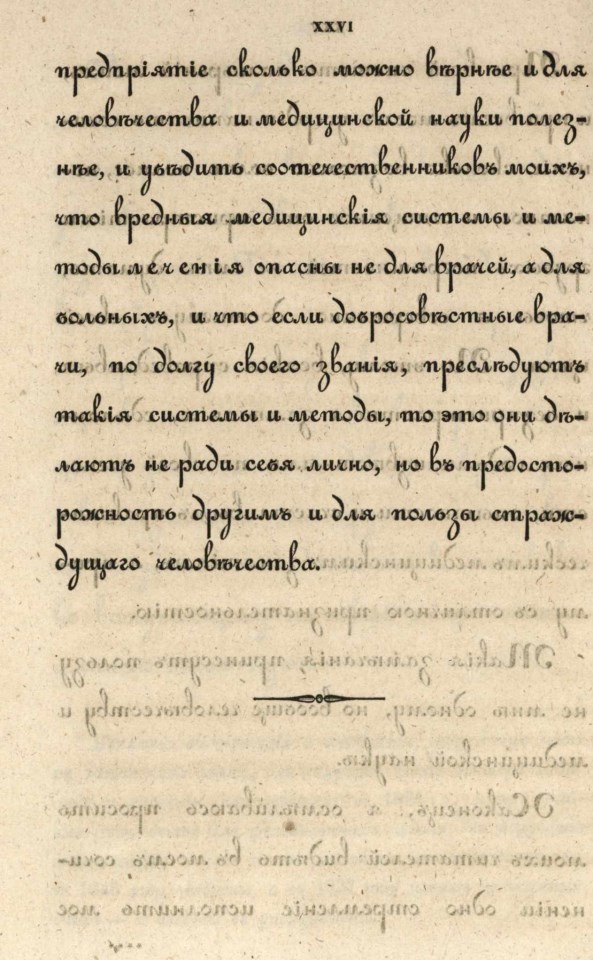 XXVI
предпріятіе сколько можно вѣрнѣе и для
человѣчества и медицинской науки полез-
нѣе, и убѣдить соотечественниковъ моихъ,
что вредныя медицинскія системы и ме-
тоды леченія опасны не для врачей, а для
больныхъ, и что если добросовѣстные вра-
чи, по долгу своего званія, преслѣдуютъ
такія системы и методы, то это они дѣ-
лаютъ не ради себя лично, но въ предосто-
рожность другимъ и для пользы страж-
дущаго человѣчества.